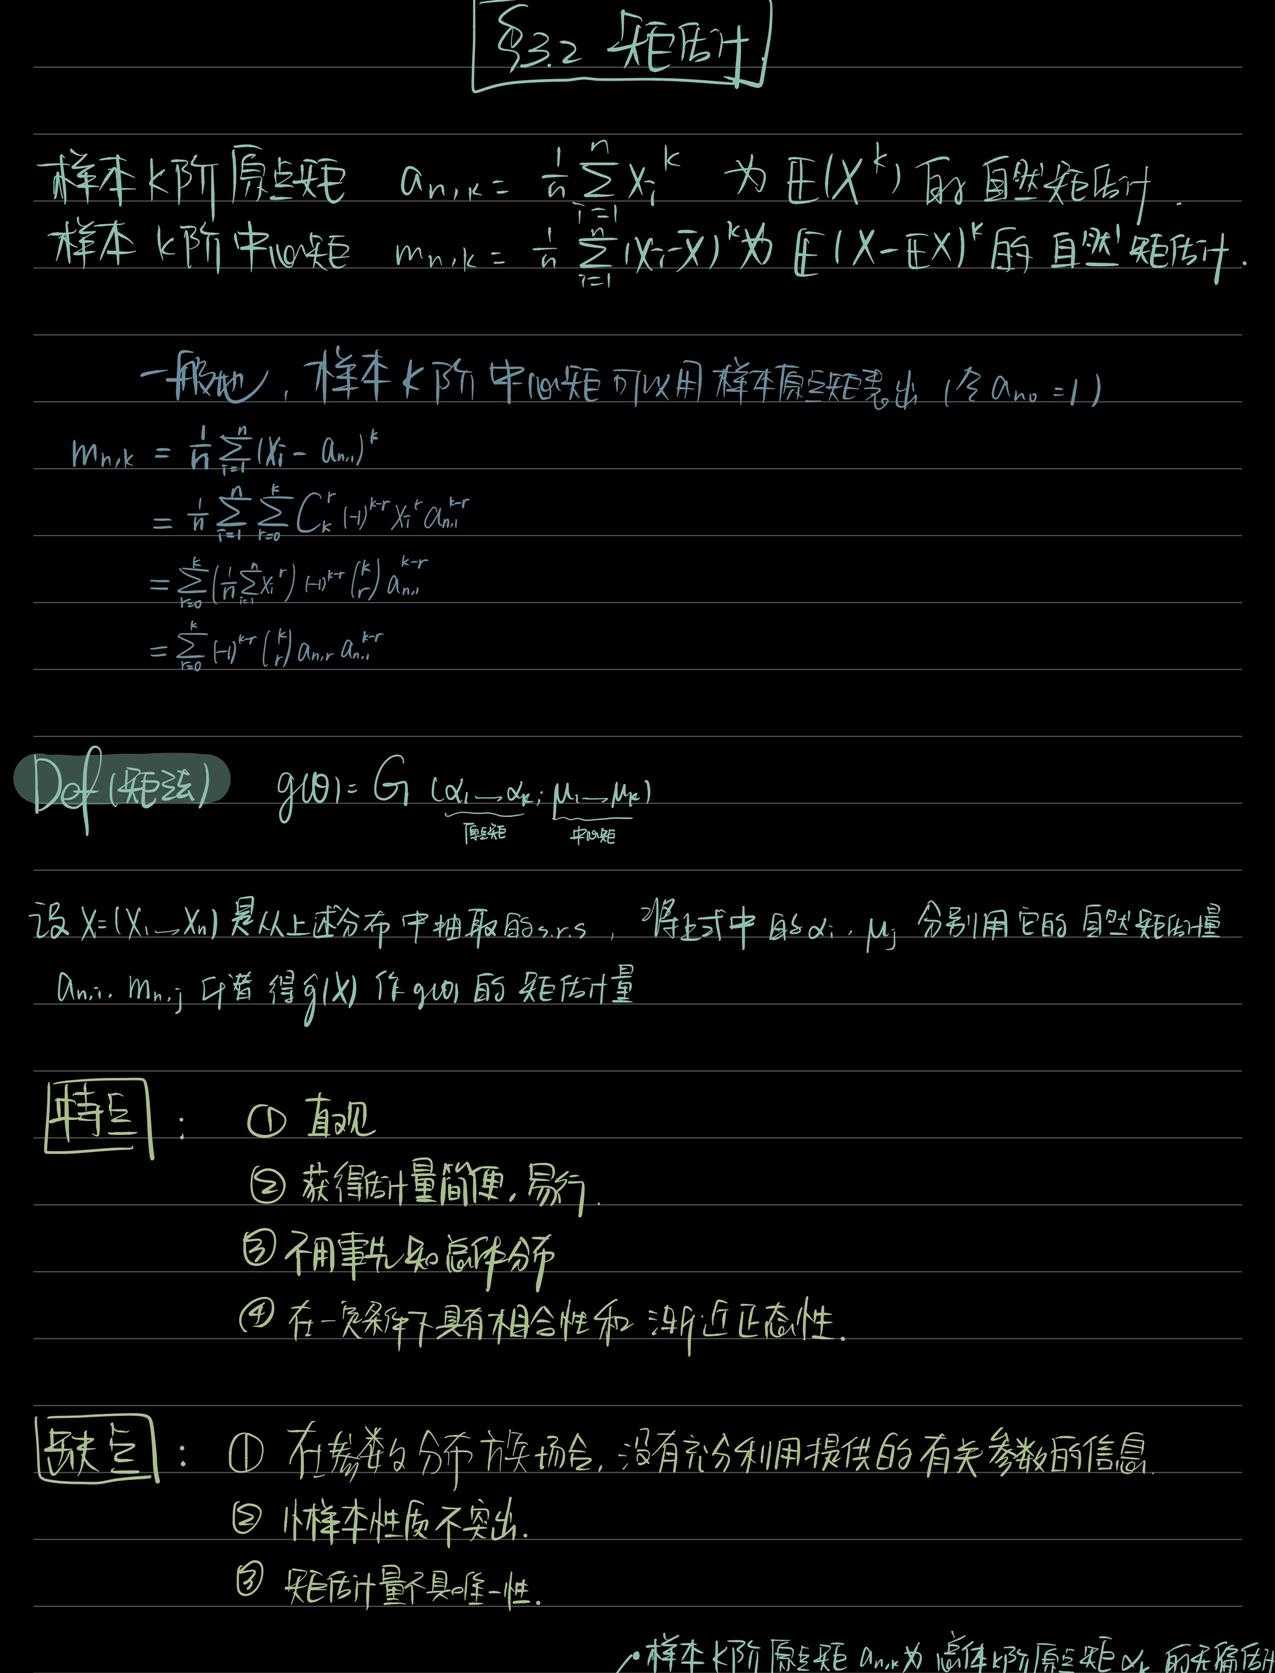 §3.2 矩估计
样本k阶原点矩 a_{n,k} = \frac{1}{n} \sum_{i=1}^{n} X_i^k 为 E(X^k) 的自然矩估计.
样本k阶中心矩 m_{n,k} = \frac{1}{n} \sum_{i=1}^{n} (X_i-\bar{X})^k 为 E(X-EX)^k 的自然矩估计.
一般地, 样本k阶中心矩可以用样本原点矩表出 (令 a_{n0} = 1)
m_{n,k} = \frac{1}{n} \sum_{i=1}^{n} (X_i - a_{n,1})^k
= \frac{1}{n} \sum_{i=1}^{n} \sum_{r=0}^{k} C_k^r (-1)^{k-r} X_i^r a_{n,1}^{k-r}
= \sum_{r=0}^{k} (\frac{1}{n} \sum_{i=1}^{n} X_i^r) (-1)^{k-r} \binom{k}{r} a_{n,1}^{k-r}
= \sum_{r=0}^{k} (-1)^{k-r} \binom{k}{r} a_{n,r} a_{n,1}^{k-r}
Def (矩法) g(θ) = G (α_1 … α_k; μ_1 … μ_k)
原点矩 中心矩
设 X=(X_1 … X_n) 是从上述分布中抽取的s.r.s, 将上式中的 α_i, μ_j 分别用它的自然矩估计量
a_{n,i}, m_{n,j} 代替得 \hat{g}(X) 作 g(θ) 的矩估计量
特点: ① 直观
② 获得估计量简便, 易行.
③ 不用事先知总体分布
④ 在一定条件下具有相合性和渐近正态性.
缺点: ① 在参数分布族场合, 没有充分利用提供的有关参数的信息.
② 小样本性质不突出.
③ 矩估计量不具唯一性.
样本k阶原点矩 a_{n,k} 为总体k阶原点矩 α_k 的无偏估计